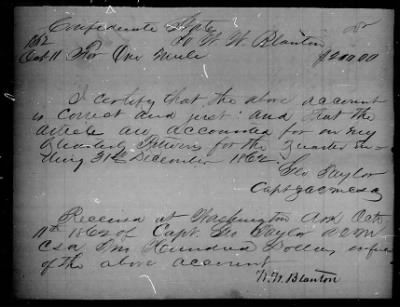 Confederate States Dr
1862 To W. W. Blanton
Oct 11 For One Mule $200.00
I certify that the above account
is correct and just: and that the
article are accounted for on my
Quarterly Returns for the quarter en-
ding 31st December 1862.
Geo Taylor
Capt &
Received at Washington Ark Oct
11th 1862 of Capt. Geo Taylor
C.S.A. Two Hundred Dollars in full
of the above account
W. W. Blanton